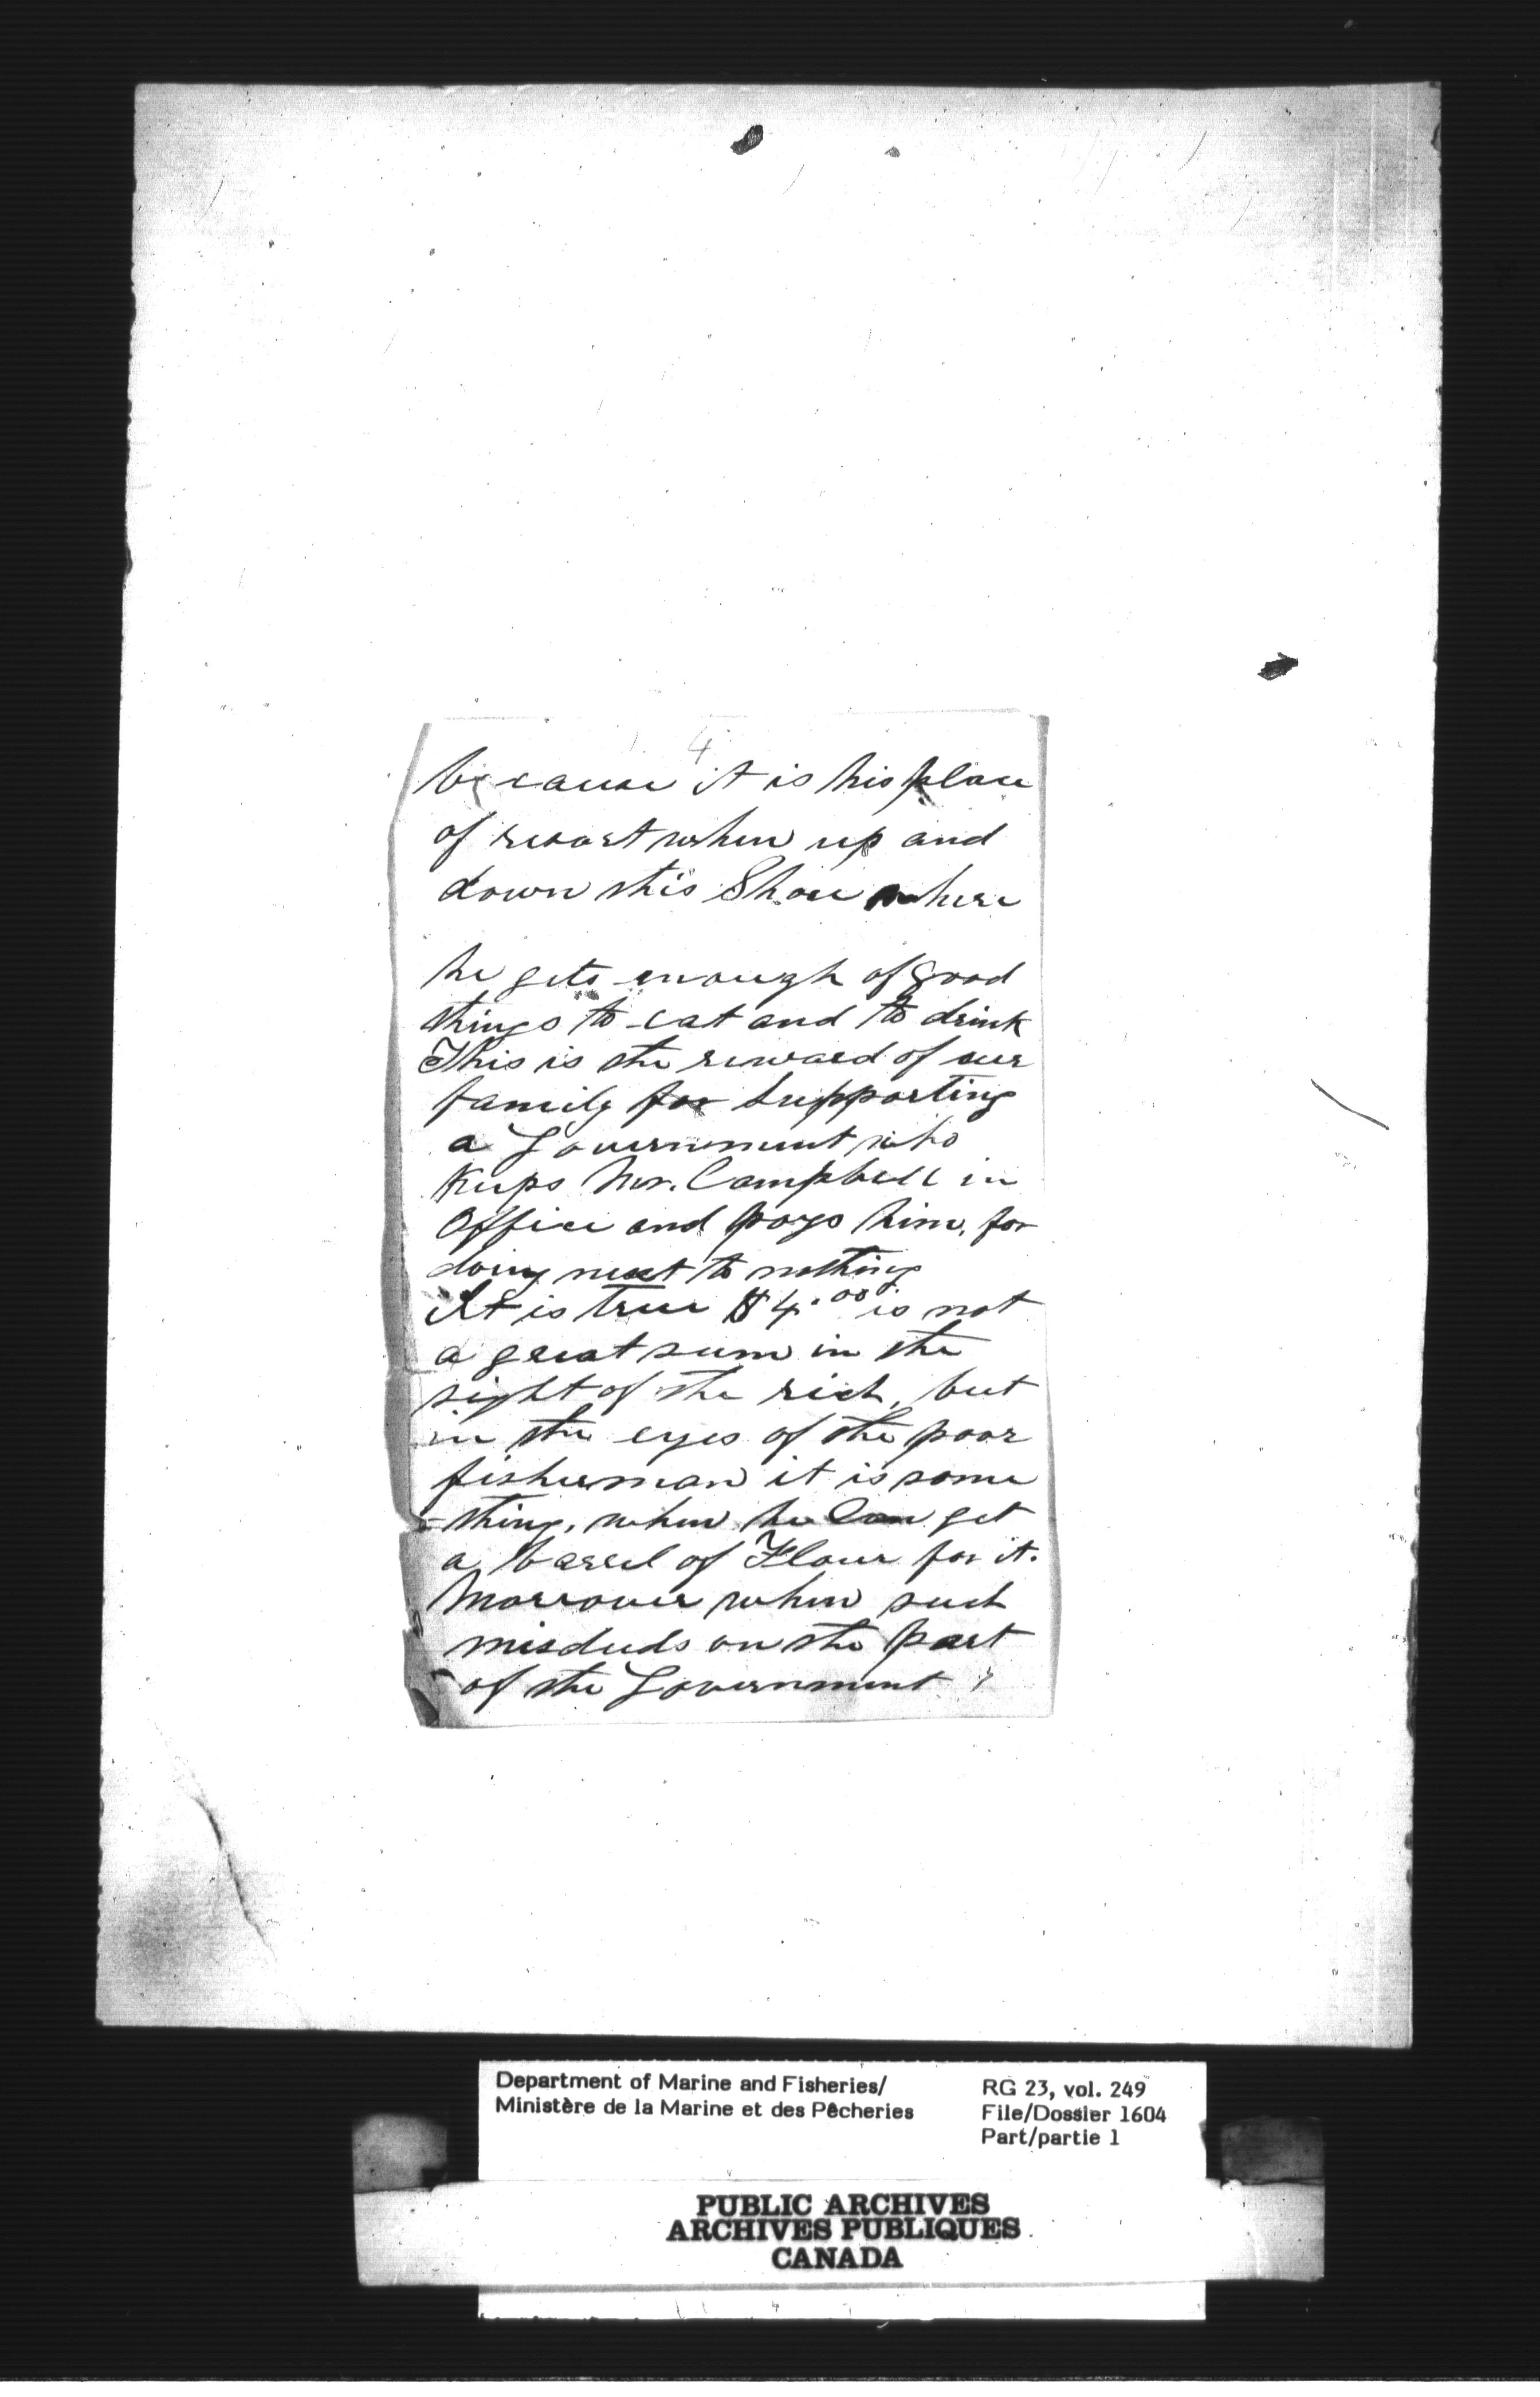 4
because it is his place
of resort when up and
down this Shore where
he gets enough of good
things to eat and to drink
This is the reward of our
family for Supporting
a Government who
Keeps Mr. Campbell in
Office and pays him, for
doing next to nothing
It is true $4.00 is not
a great sum in the
sight of the rich, but
in the eyes of the poor
fisherman it is some
-thing, when he Can get
a barrel of Flour for it.
Morrover when such
misdeeds on the part
of the Government
Department of Marine and Fisheries/
Ministère de la Marine et des Pêcheries
RG 23, vol. 249
File/Dossier 1604
Part/partie 1
PUBLIC ARCHIVES
ARCHIVES PUBLIQUES
CANADA